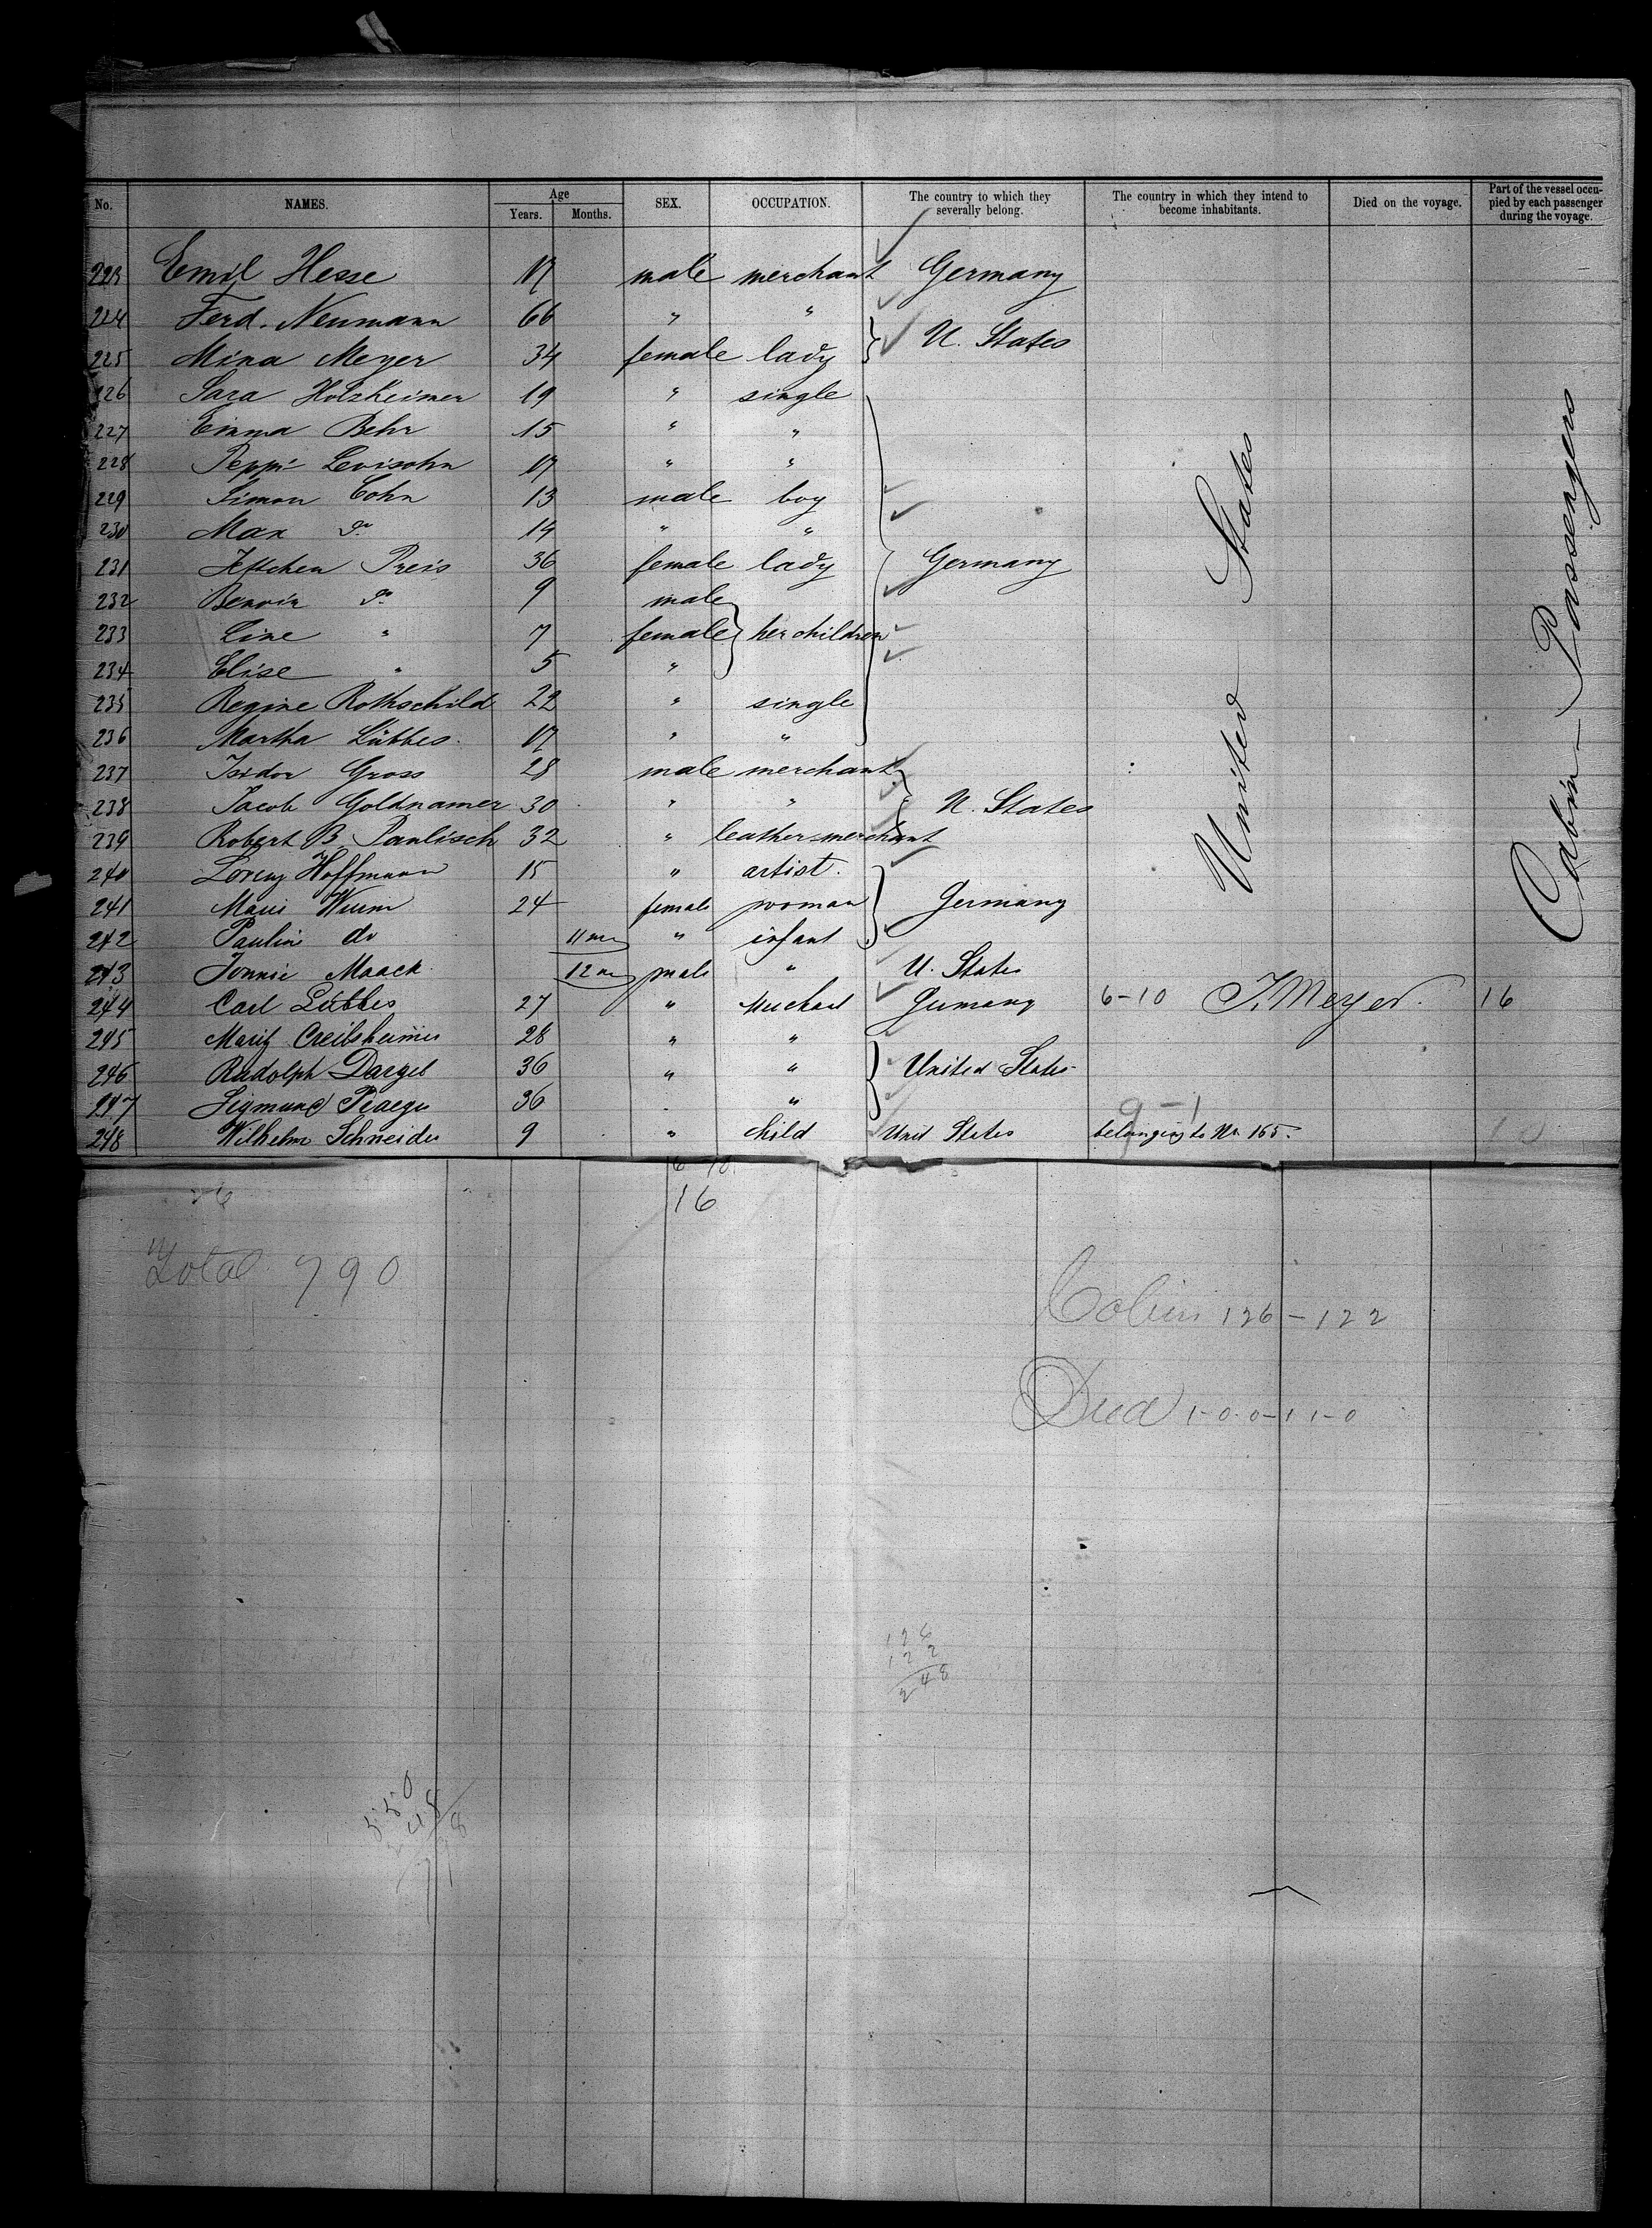 No. NAMES. Age Years. Months. SEX. OCCUPATION. The country to which they severally belong. The country in which they intend to become inhabitants. Died on the voyage. Part of the vessel occupied by each passenger during the voyage.
223 Emil Hesse 17 male merchant Germany
224 Ferd. Neumann 66 " "
U. States
225 Mina Meyer 34 female lady
226 Sara Holzheimer 19 " single
227 Emma Behr 15 " "
228 Peppi Levisohn 17 " "
229 Simon Cohn 13 male boy
230 Max do 14 " "
231 Jettchen Preis 36 female lady Germany
232 do 9 male
233 Line " 7 female her children
234 Elise " 5 "
235 Regine Rothschild 22 " single
236 Martha Lübbes 17 " "
237 Isidor Gross 28 male merchant
238 Jacob Goldnamer 30 " " U. States
239 Robert B. Paulisch 32 " leather merchant
240 Lorenz Hoffmann 15 " artist.
241 Wurm 24 female woman Germany
242 Paulin do 11 m " infant
243 Maack 12 m male " U. States
244 Carl Lübbes 27 " Germany 6-10 J. Meyer. 16
245 28 " "
246 Rudolph 36 " " United States
247 Sigmund 36 "
248 Wilhelm Schneider 9 " child Unit States belonging to No. 165.
9-1
United States
Cabin-Passengers
6-10.
16
Total 790
126-122
1-0.0-1 1-0
126
122
248